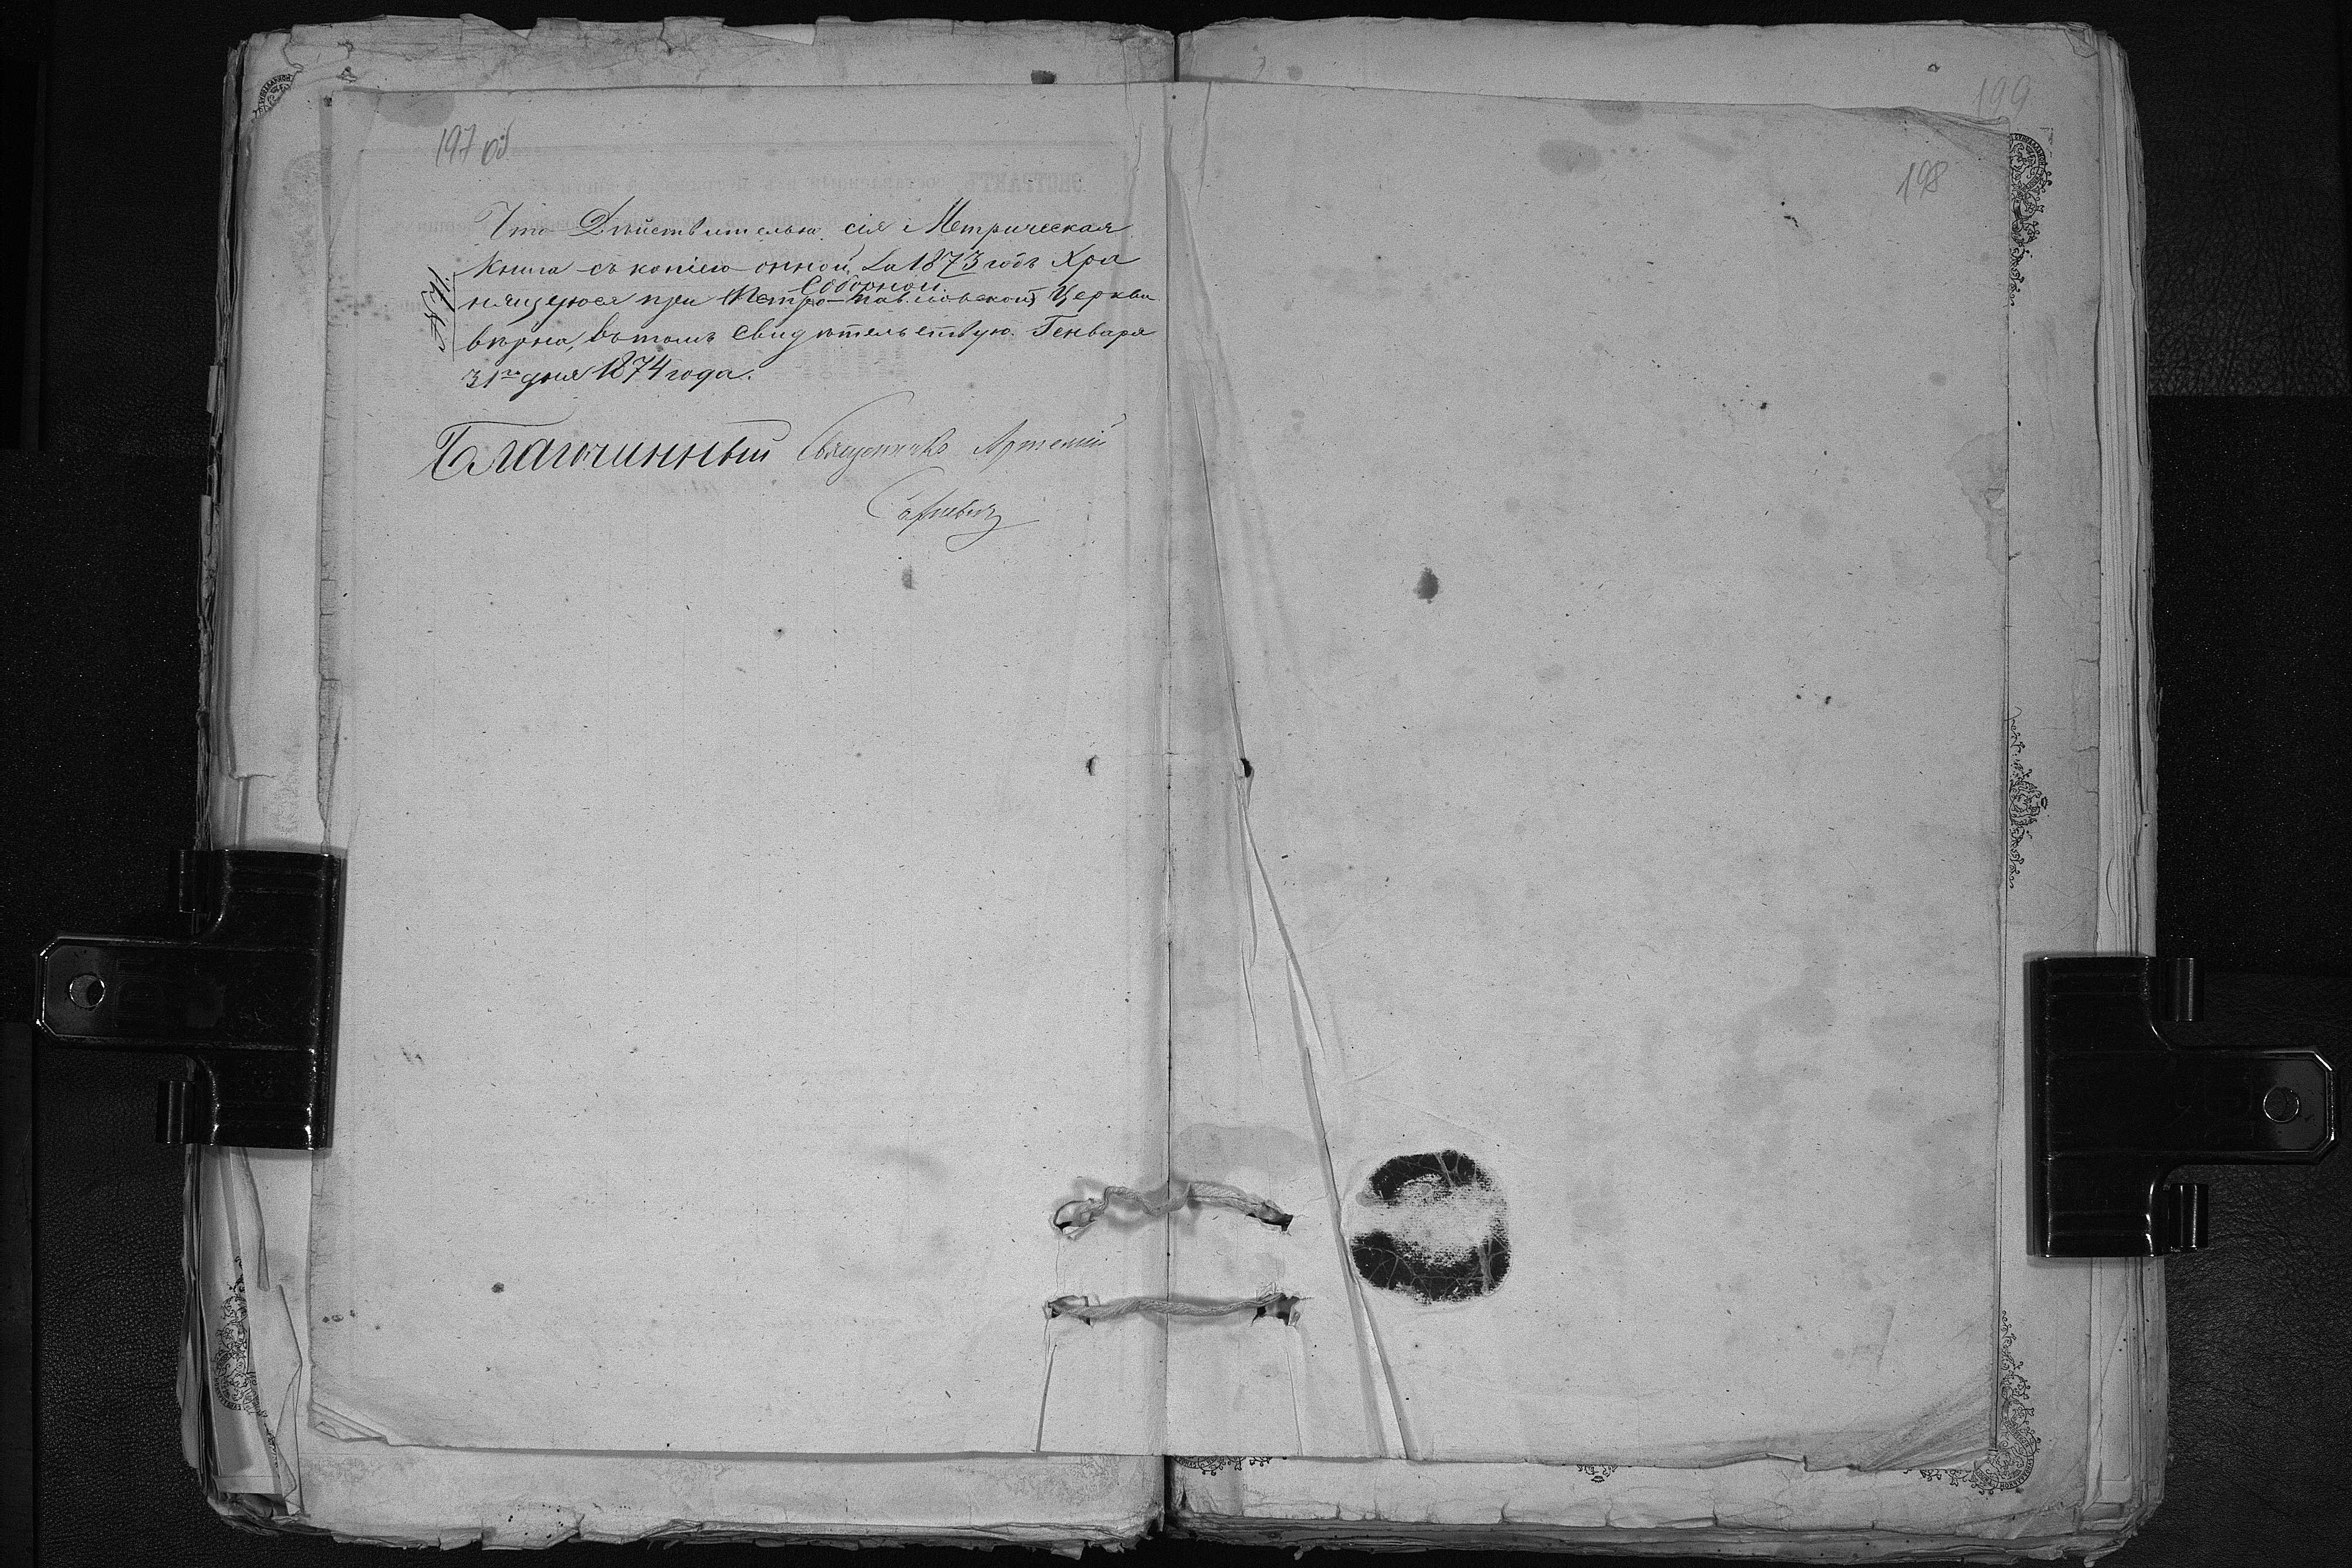 197 об
199
198
Что Дѣйствительно сія Метрическая
Книга съ копіею онной за 1873 годъ Хра
нящеюся при (Петро-Павловской) Соборной Церкви
вѣрна, въ томъ Свидѣтельствую. Генваря
31го дня 1874 года.
Благочинный Священникъ Артемій